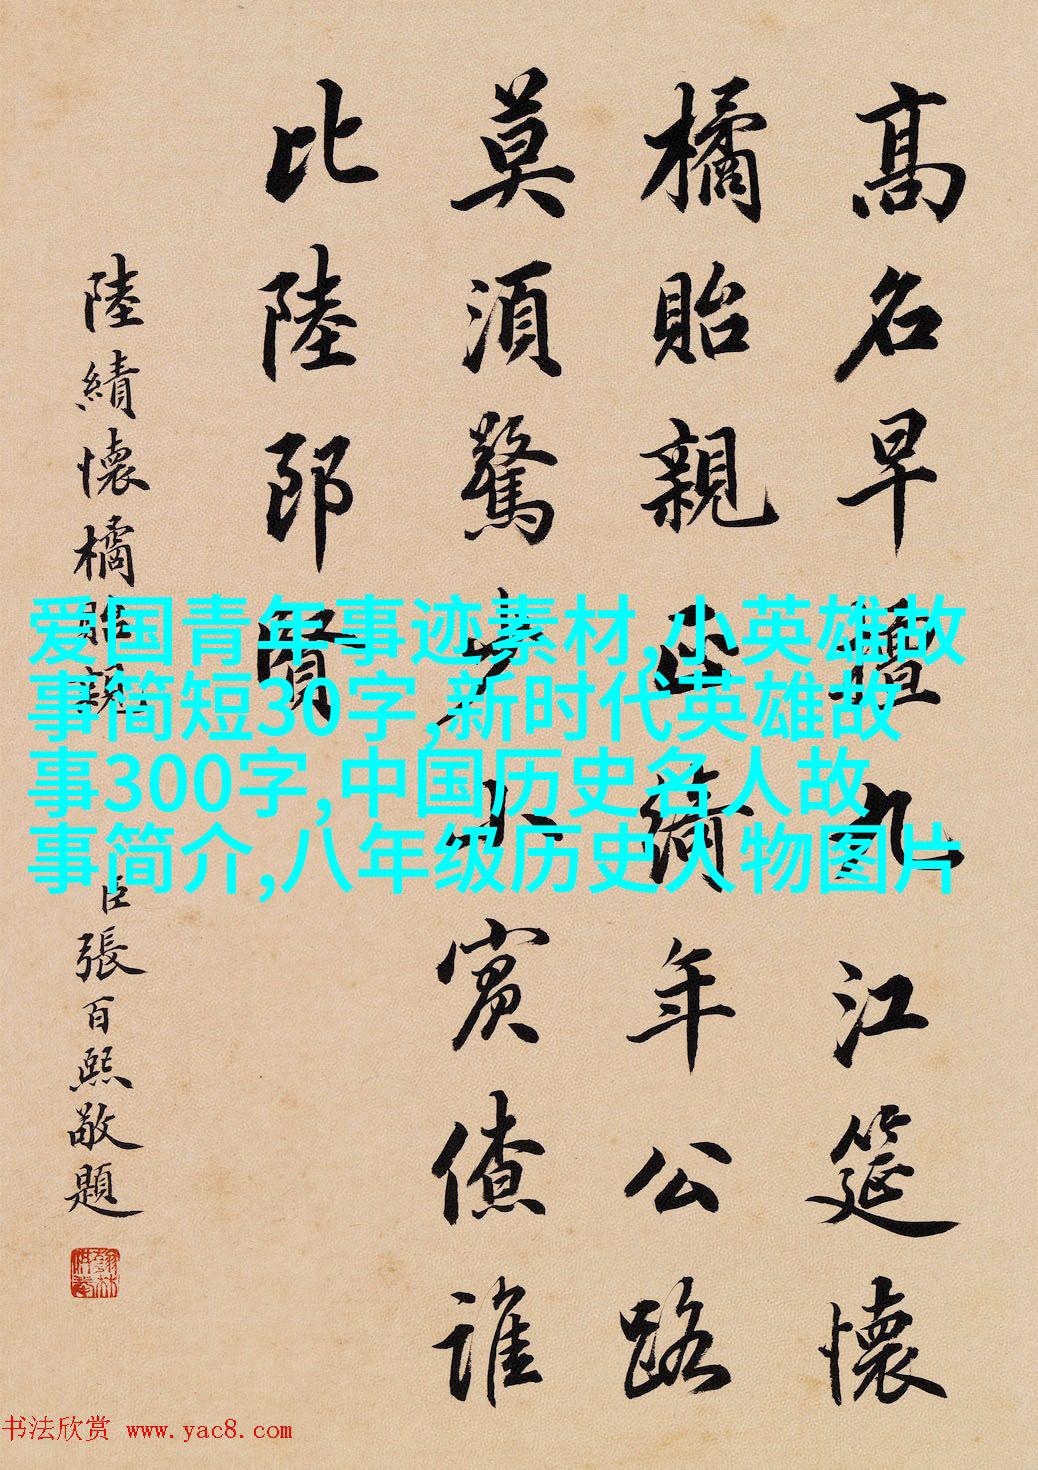 高名早擅九江筵懷
橘貽親正綺年公路
莫須驚少小賓僚誰
比陸郎賢
陸績懷橘貽親 臣張百熙敬題
爱国青年事迹素材,小英雄故
事简短30字,新时代英雄故
事300字,中国历史名人故
事简介,八年级历史人物图片
书法欣赏 www.yac8.com